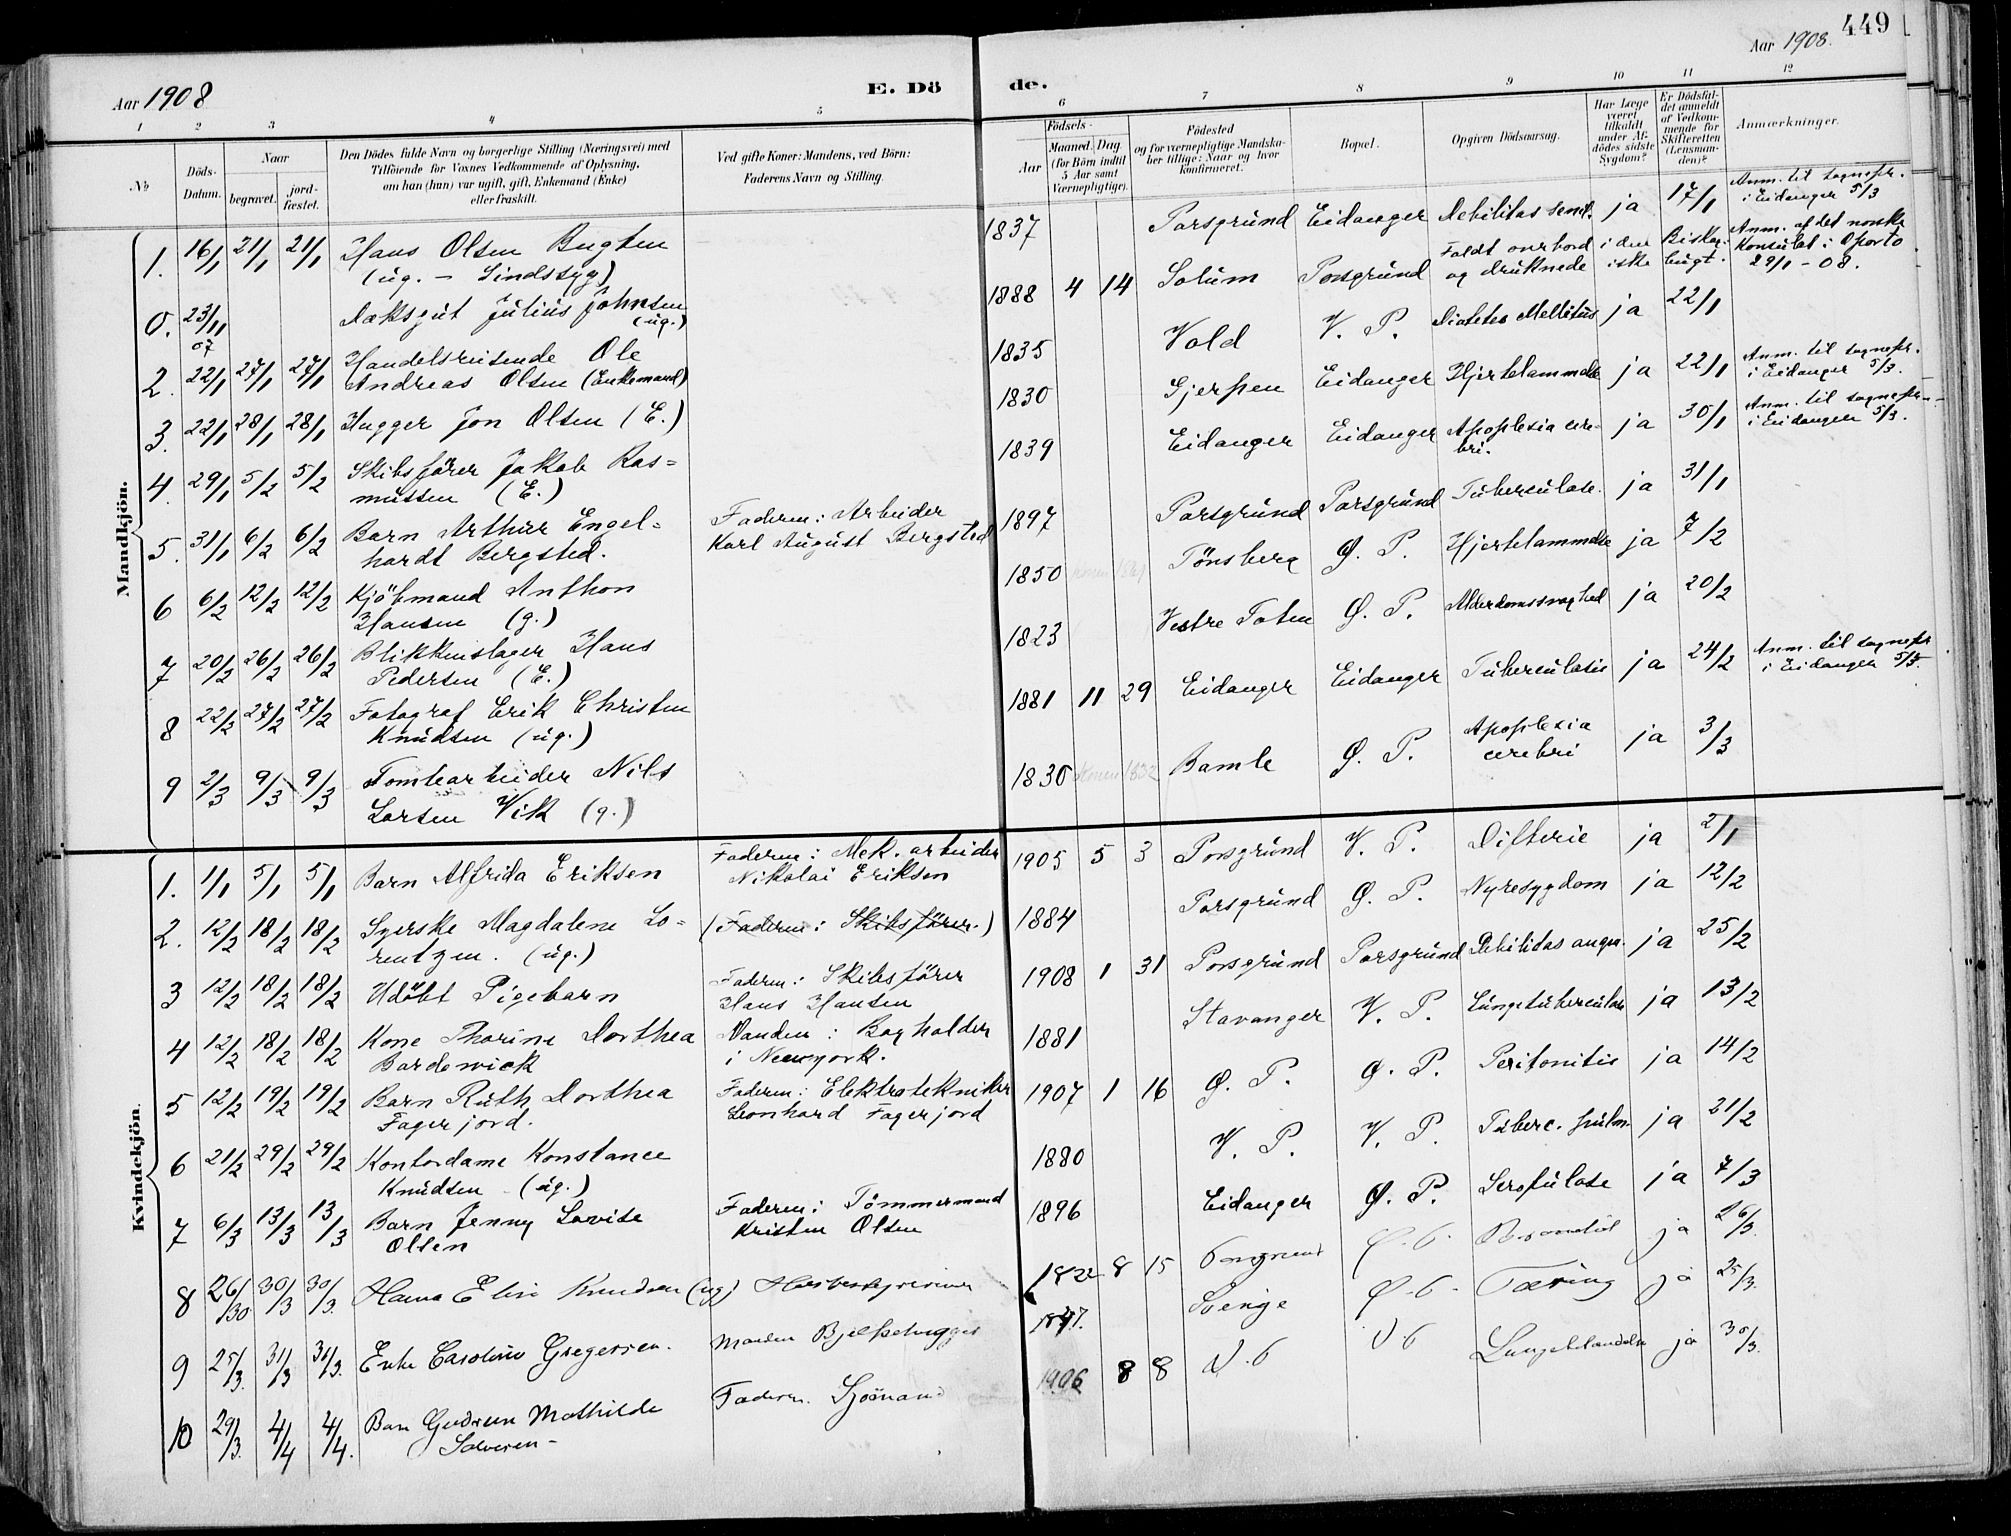 449
Aar 1908. E. Dö de. Aar 1908.
1 2 3 4 5 6 7 8 9 10 11 12
No
Döds-Datum.
Naar
begravet.
jord-fæstet.
Den Dödes fulde Navn og borgerlige Stilling (Næringsvei) med
Tilföiende for Voxnes Vedkommende af Oplysning,
om han (hun) var ugift, gift, Enkemand (Enke)
eller fraskilt.
Ved gifte Koner: Mandens, ved Börn:
Faderens Navn og Stilling.
Födsels-
Aar
Maaned. Dag.
(for Börn indtil
5 Aar samt
Værnepligtige).
Födested
og for værnepligtige Mandska-
ber tillige: Naar og hvor
konfirmeret.
Bopæl.
Opgiven Dödsaarsag.
Har Læge
været
tilkaldt
under Af-
dödes sidste
Sygdom?
Er Dödsfal-
det anmeldt
af Vedkom-
mende for
Skifteretten
(Lensman-
den)?
Anmærkninger.
Mandkjön.
1. 16/1 21/1 21/1 Hans Olsen Bugten 1837 Porsgrund Eidanger Debilitas senil. ja 17/1 Anm. til sognepr.
(ug. – Sindssyg) i Eidanger 5/3
0. 23/11 07 Dæksgut Julius Johnsen 1888 4 14 Solum Porsgrund Faldt overbord i den Biskai- Anm. af det norske
(ug.) og druknede iske bugt. Konsulat i Oporto
29/1 – 08.
2. 22/1 27/1 27/1 Handelsreisende Ole 1835 Vold V. P. Diabetes Mellitus ja 22/1
Andreas Olsen (Enkemand)
3. 22/1 28/1 28/1 Hugger Jon Olsen (E.) 1830 Gjerpen Eidanger Hjertelammelse ja 22/1 Anm. til sognepr.
i Eidanger 5/3.
4. 29/1 5/2 5/2 Skibsfører Jakob Ras= 1839 Eidanger Eidanger Apoplexia cere- ja 30/1 Anm. til sognepr.
mussen (E.) bri. i Eidanger 5/3.
5. 31/1 6/2 6/2 Barn Arthur Engel= Faderen: Arbeider 1897 Porsgrund Porsgrund Tuberculose. ja 31/1
hardt Bergsted. Karl August Bergsted
6 6/2 12/2 12/2 Kjöbmand Anthon 1850 Tönsberg Ø. P. Hjertelammelse ja 7/2
Hansen (g.)
7 20/2 26/2 26/2 Blikkenslager Hans 1823 Vestre Toten Ø. P. Alderdomssvaghed ja 20/2
Pedersen (E.)
8 22/2 27/2 27/2 Fotograf Erik Christen 1881 11 29 Eidanger Eidanger Tuberculosis ja 24/2 Anm. til sognepr.
Knudsen (ug.) i Eidanger 5/3.
9 2/3 9/3 9/3 Tomtearbeider Nils 1830 Konen 1832 Bamle Ø. P. Apoplexia ja 3/3
Larsen Vik (g.) cerebri
Kvindekjön.
1. 1/1 5/1 5/1 Barn Alfrida Eriksen Faderen: Mek. arbeider 1905 5 3 Porsgrund V. P. Difterie ja 2/1
Nikolai Eriksen
2. 12/2 18/2 18/2 Syerske Magdalene Lo= (Faderen: Skibsfører.) 1884 Porsgrund Ø. P. Nyresygdom ja 12/2
rentzen. (ug.)
3 12/2 18/2 18/2 Udöbt Pigebarn Faderen: Skibsfører 1908 1 31 Porsgrund Porsgrund Debilitas ja 25/2
Hans Hansen
4 12/2 18/2 18/2 Kone Thorine Dorthea Manden: Bogholder 1881 Stavanger V. P. Lungetuberculose ja 13/2
Bardowick i Newyork.
5 12/2 19/2 19/2 Barn Ruth Dorthea Faderen: Elektrotekniker 1907 1 16 Ø. P. Ø. P. Peritonitis ja 14/2
Fagerjord. Leonhard Fagerjord
6 21/2 29/2 29/2 Kontordame Konstance 1880 V. P. V. P. Tuberc. pulm. ja 21/2
Knudsen (ug.)
7 6/3 13/3 13/3 Barn Jenny Lovise Faderen: Tömmermand 1896 Eidanger Ø. P. Scrofulose ja 7/3
Olsen Kristen Olsen
8 26/30 30/3 30/3. Elise Knudsen (ug) 8 15 Porsgrund ja 26/3.
9 25/3. 31/3 31/3. Enke Caroline Gregersen. Manden 1847. Sverige Tæring ja 25/3.
10 29/3. 4/4 4/4. Barn Gudrun Mathilde Faderen Sjömand 1906 8 8 V. P V P ja 30/3.